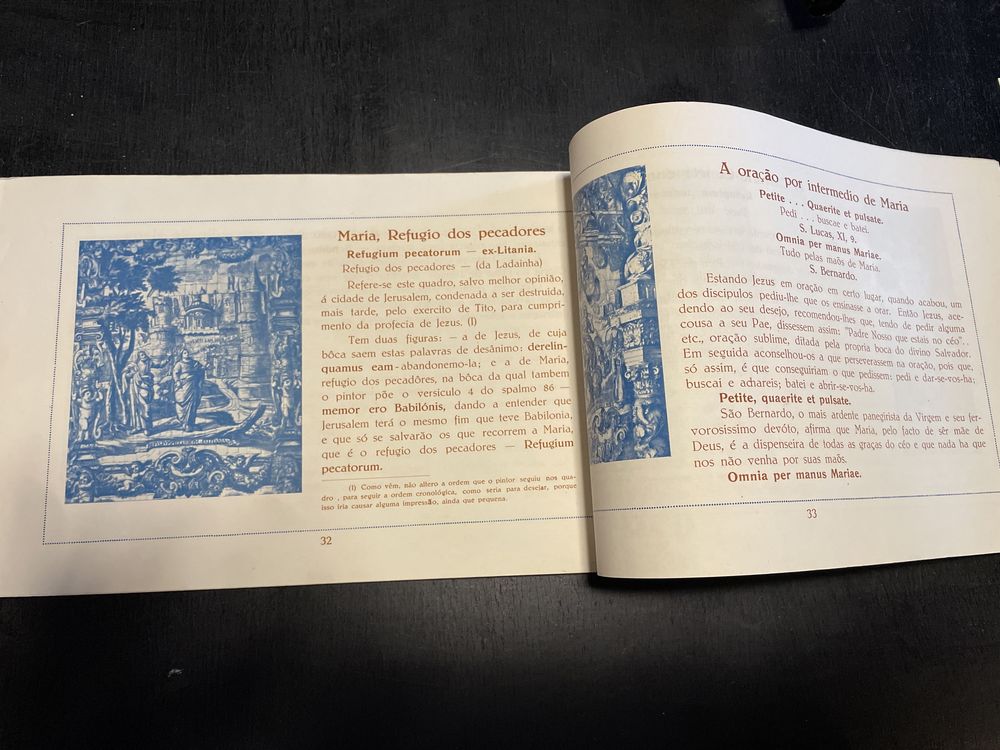 Maria, Refugio dos pecadores
Refugium pecatorum — ex-Litania.
Refugio dos pecadores — (da Ladainha)
Refere-se este quadro, salvo melhor opinião,
á cidade de Jerusalem, condenada a ser destruida,
mais tarde, pelo exercito de Tito, para cumpri-
mento da profecia de Jezus. (I)
Tem duas figuras: — a de Jezus, de cuja
bôca saem estas palavras de desânimo: derelin-
quamus eam-abandonemo-la; e a de Maria,
refugio dos pecadôres, na bôca da qual tambem
o pintor põe o versiculo 4 do spalmo 86 —
memor ero Babilónis, dando a entender que
Jerusalem terá o mesmo fim que teve Babilonia,
e que só se salvarão os que recorrem a Maria,
que é o refugio dos pecadores — Refugium
pecatorum.
(I) Como vêm, não altero a ordem que o pintor seguiu nos qua-
dro , para seguir a ordem cronológica, como seria para desejar, porque
isso iria causar alguma impressão, ainda que pequena.
32
A oração por intermedio de Maria
Petite . . . Quaerite et pulsate.
Pedi . . . buscae e batei.
S. Lucas, XI, 9.
Omnia per manus Mariae.
Tudo pelas maõs de Maria.
S. Bernardo.
Estando Jezus em oração em certo lugar, quando acabou, um
dos discipulos pediu-lhe que os ensinasse a orar. Então Jezus, ace-
dendo ao seu desejo, recomendou-lhes que, tendo de pedir alguma
cousa a seu Pae, dissessem assim: "Padre Nosso que estais no céo". .
etc., oração sublime, ditada pela propria boca do divino Salvador.
Em seguida aconselhou-os a que perseverassem na oração, pois que,
só assim, é que conseguiriam o que pedissem: pedi e dar-se-vos-ha;
buscai e achareis; batei e abrir-se-vos-ha.
Petite, quaerite et pulsate.
São Bernardo, o mais ardente panegirista da Virgem e seu fer-
vorosissimo devóto, afirma que Maria, pelo facto de sêr mãe de
Deus, é a dispenseira de todas as graças do céo e que nada ha que
nos não venha por suas maõs.
Omnia per manus Mariae.
33